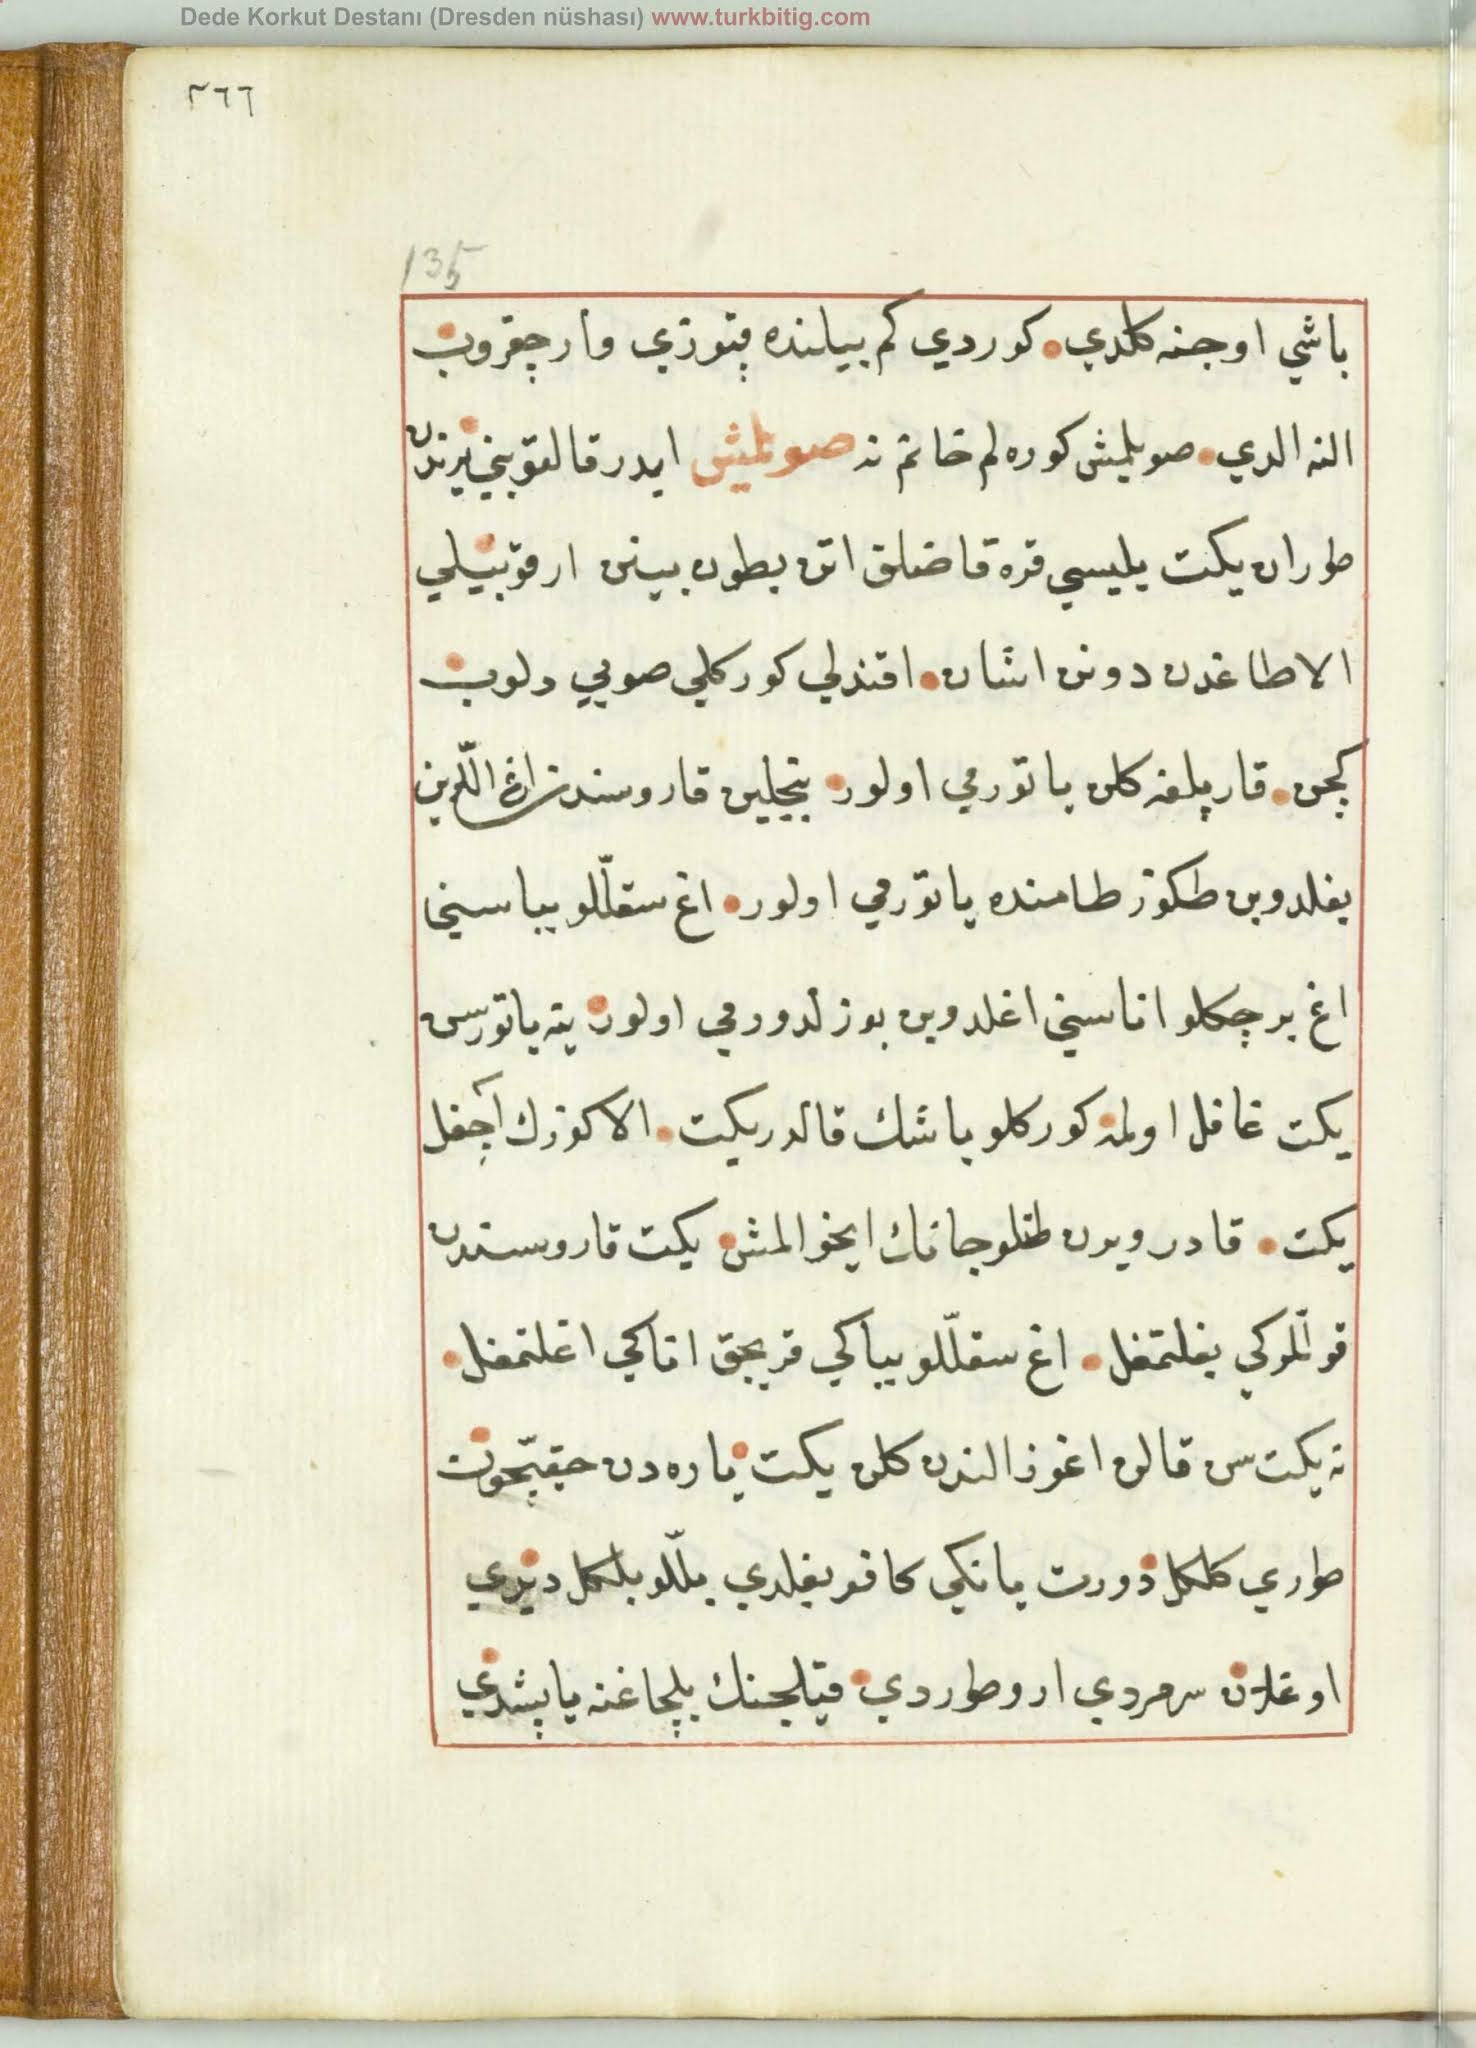 Dede Korkut Destanı (Dresden nüshası) www.turkbitig.com
٢٦٦
135
باشي اوجنه كلدي كوردي كم بيلنده قپوزي وار چقروب
النه الدي صويلمش كوره لم خانم نه صويلمش ايدر قالقوبني يرندن
طوران يكت يليسي قره قاضلق اتن بطون بينن ارقوبيلي
الا طاغدن دونن اشان اقندلي كوركلي صويي دلوب
كچن قارپلغه كلن ياتورمي اولور بنجلين قاروسندن ارغ اللرين
بغلدوبن طكوز طامنده ياتورمي اولور اغ سقللو بباسني
اغ برچكلو اناسني اغلدوبن بوزلدورمي اولور نيه ياتورسن
يكت غافل اولمه كوركلو باشك قالدر يكت الا كوزك اچغل
يكت قادر ويرن طتلو جانك ايخو المش يكت قاروسندن
قوللركي بغلتمغل اغ سقللو بباكي قريجق اناكي اغلتمغل
نه يكت سن قالن اغوز الندن كلن يكت ياره دن حقيچون
طوري كلكل دورت يانكي كافر بغلدي بللو بلكل ديدي
اوغلان سرمردي ارو طوردي قيلجنك بلچاغنه ياپشدي